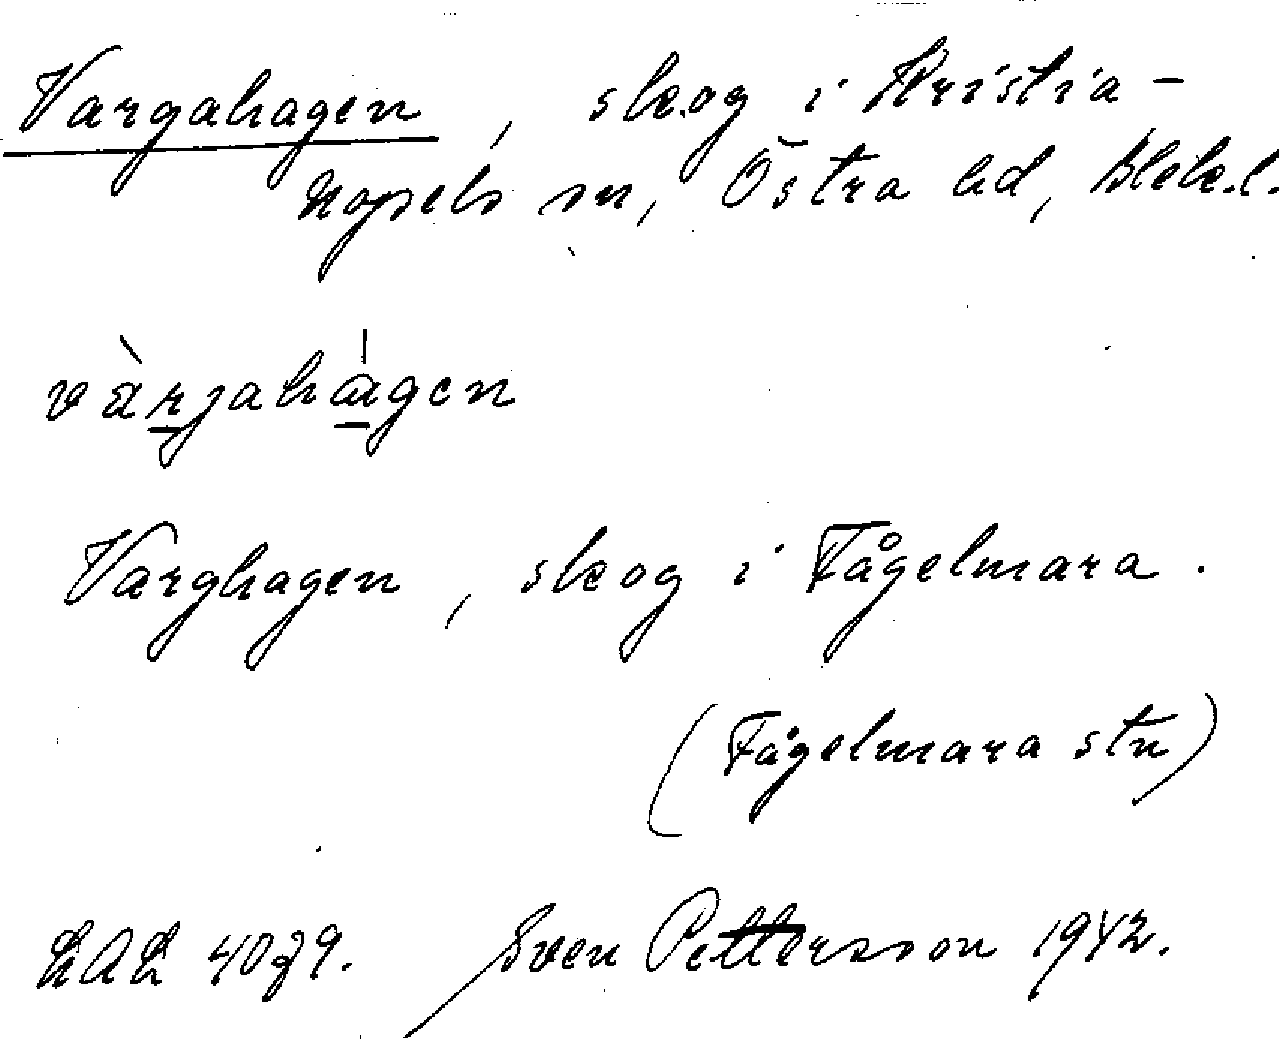 Vargahagen, skog i Kristia-
nopels sn, Östra hd, Blek.l.
vàrgahágen
Varghagen, skog i Fågelmara.
(Fågelmara stn)
LAL 4079. Sven Pettersson 1942.